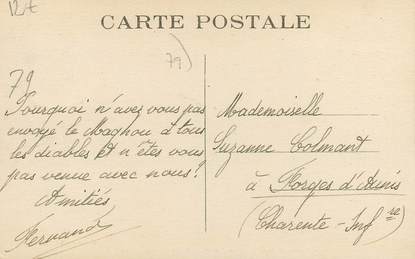 12t
CARTE POSTALE
79
79
Pourquoi n'avez vous pas
envoyé le Magnou à tous
les diables et n'êtes vous
pas venue avec nous!
Amitiés
Fernand
Mademoiselle
Suzanne Colmant
à Forges d'Aunis
(Charente-Infre)